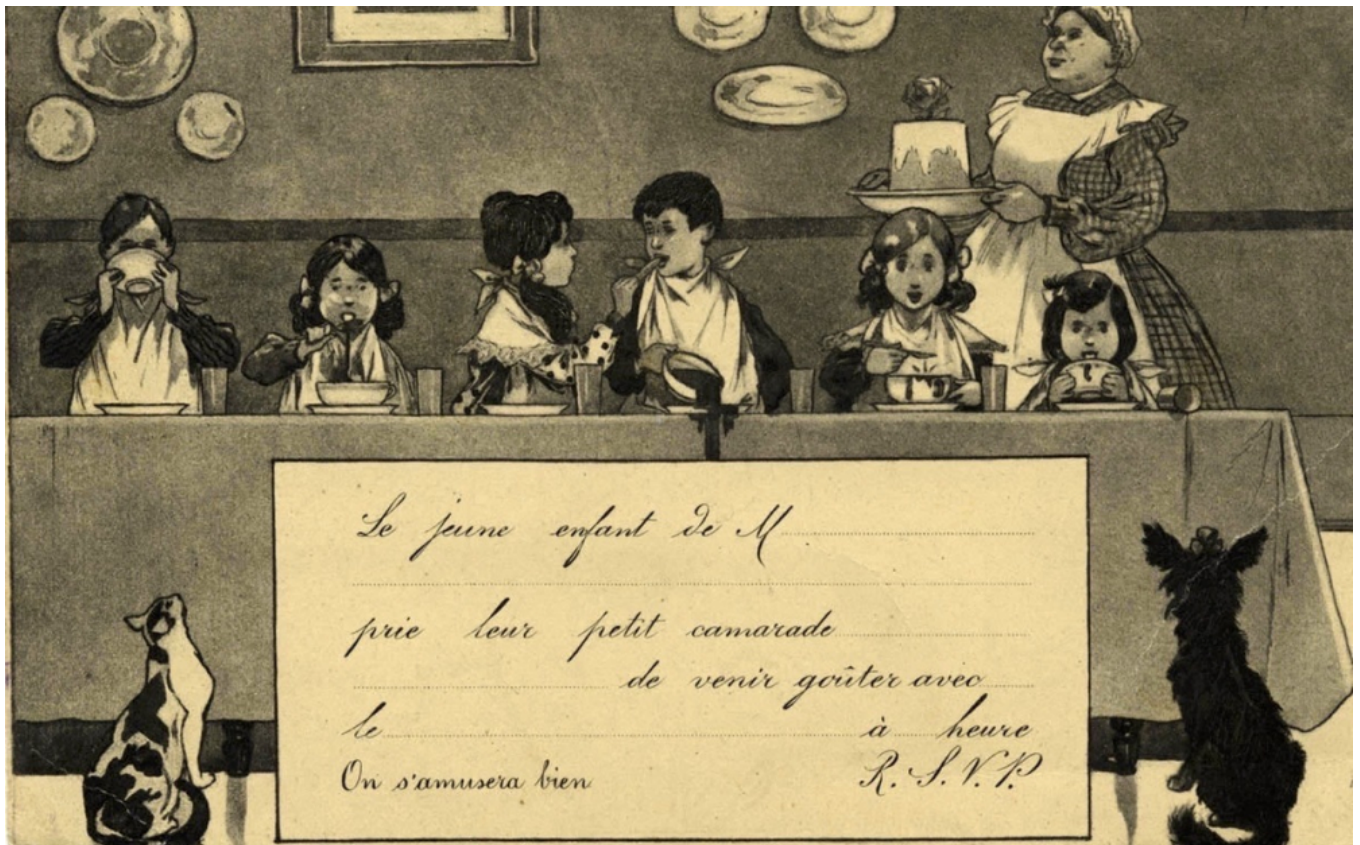 Le jeune enfant de M
prie leur petit camarade
de venir goûter avec
le à heure
On s'amusera bien R. S. V. P.